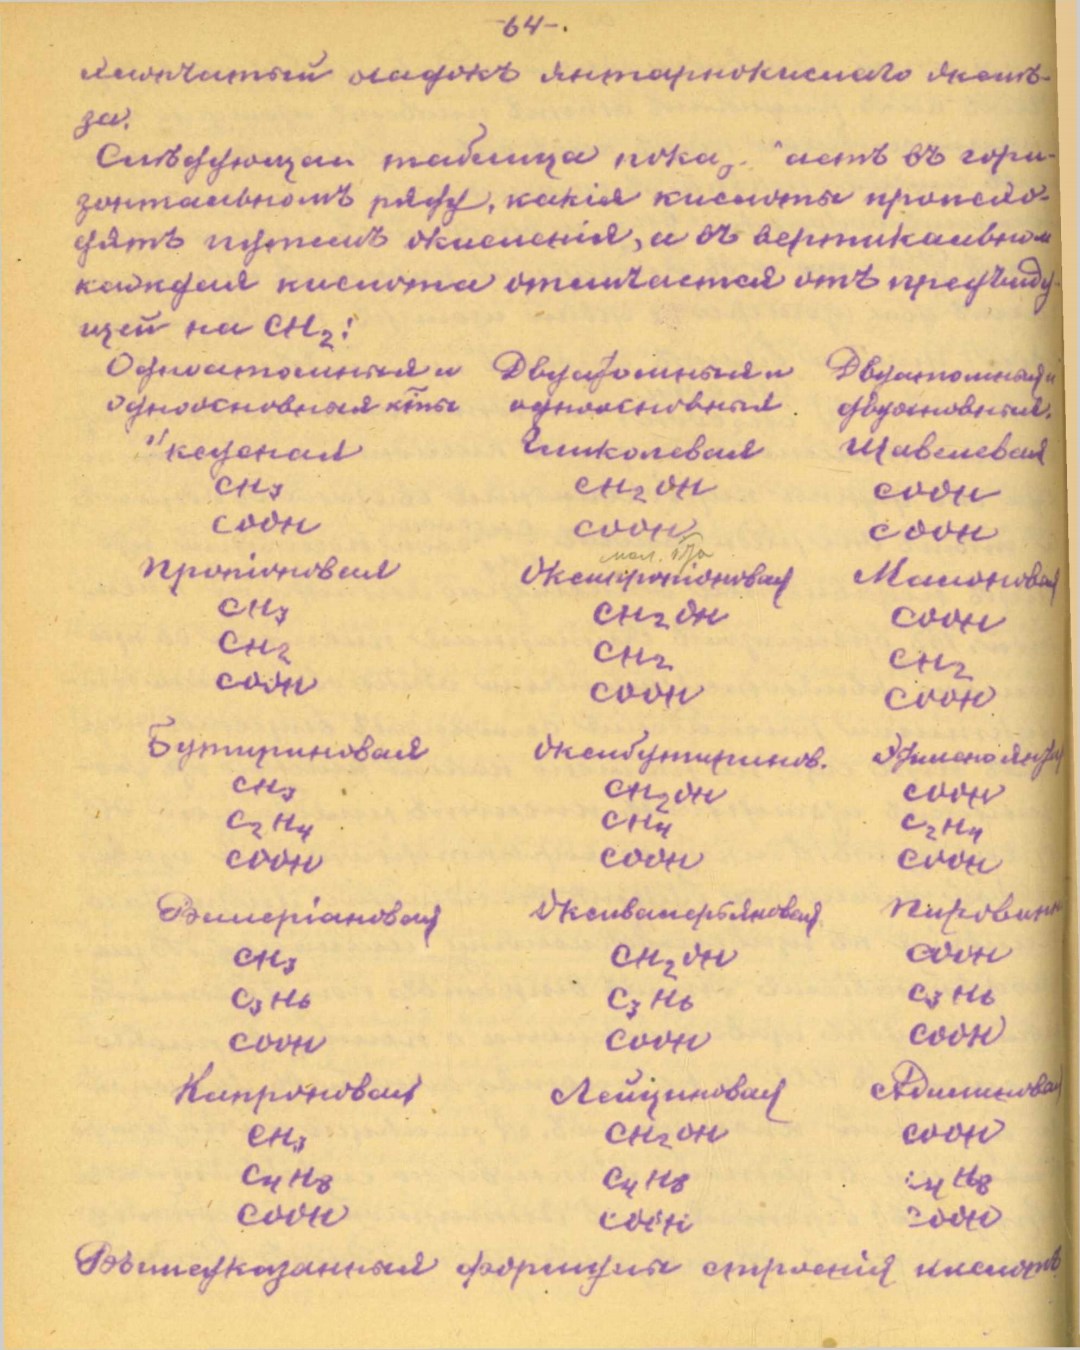 -64-.
хлопчатый осадокъ янтарнокислаго желѣ-
за.
Слѣдующая таблица пока аетъ въ гори-
зонтальномъ ряду, какія кислоты происхо-
дятъ путемъ окисленія, а въ вертикальном
каждая кислота отличается отъ предъиду-
щей на CH2:
Одноатомныя и Двуатомныя и Двуатомныя и
одноосновныя к-ты одноосновныя двуосновныя.
Уксусная Гликолевая Щавелевая
CH3 CH2OH COOH
COOH COOH COOH
мол.
Пропіоновая Оксипропіоновая Малоновая
CH3 CH2OH COOH
CH2 CH2 CH2
COOH COOH COOH
Бутириновая Оксибутиринов. Этилено янтар
CH3 CH2OH COOH
C2H4 CH4 C2H4
COOH COOH COOH
Валеріановая Оксивалерьяновая Пировинн
CH3 CH2OH COOH
C3H6 C3H6 C3H6
COOH COOH COOH
Капроновая Лейциновая Адипиновая
CH3 CH2OH COOH
C4H8 C4H8 C4H8
COOH COOH COOH
Вышеуказанныя формулы строенія кислотъ